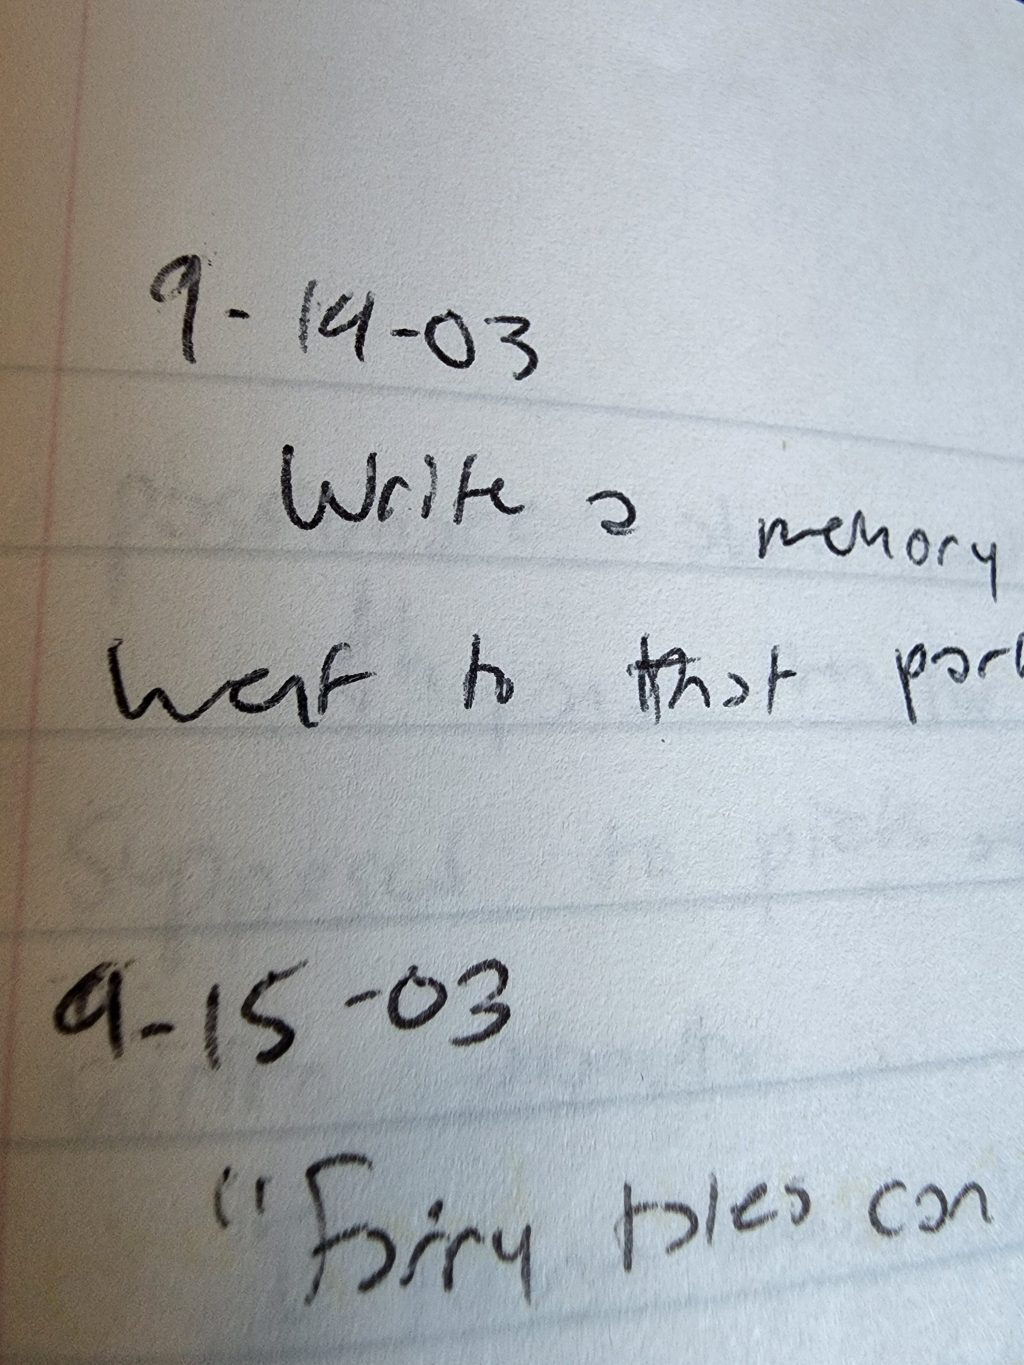 9-14-03
Write a memory
went to that
9-15-03
"Fairy tales can